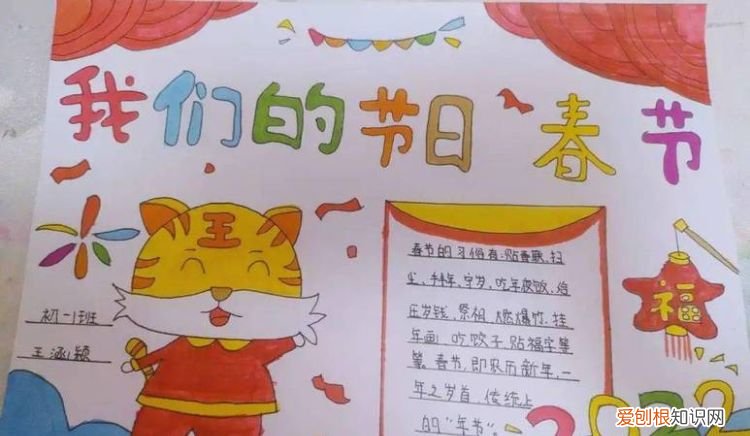 我们的节日 春节
王
初一1班
王涵颖
春节的习俗有:贴春联、扫
尘、拜年、守岁、吃年夜饭、给
压岁钱、祭祖、燃爆竹、挂
年画、吃饺子、贴福字等
等。春节,即农历新年,一
年之岁首,传统上
的“年节”。
福
2022
爱刨根知识网